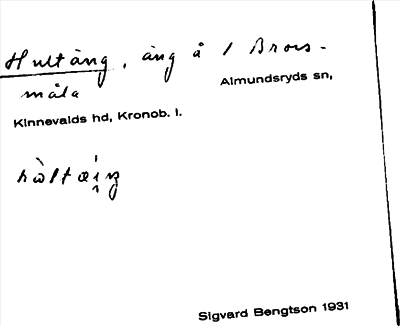 Hultäng, äng å 1 Brors-
måla
Almundsryds sn,
Kinnevalds hd, Kronob. l.
Sigvard Bengtson 1931